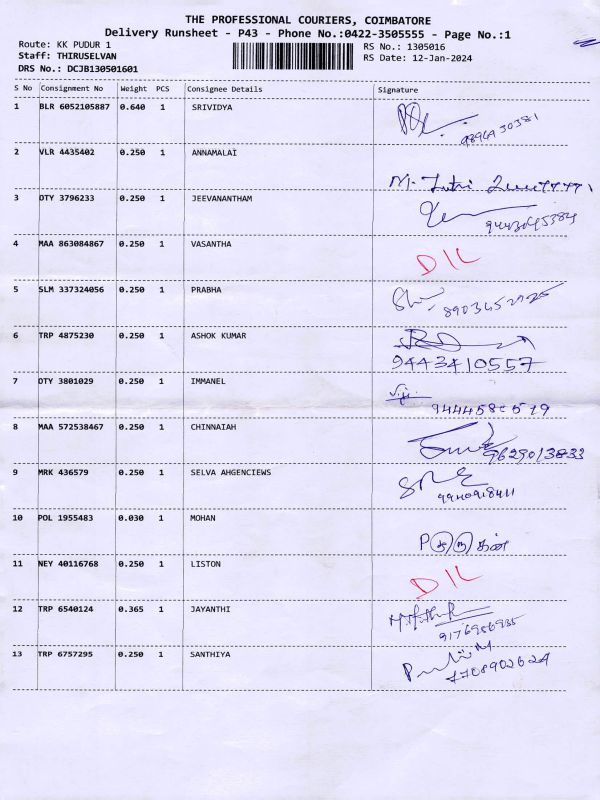 THE PROFESSIONAL COURIERS, COIMBATORE
Delivery Runsheet - P43 - Phone No.:0422-3505555 - Page No.:1
Route: KK PUDUR 1
Staff: THIRUSELVAN
DRS No.: DCJB130501601
RS No.: 1305016
RS Date: 12-Jan-2024
S No Consignment No Weight PCS Consignee Details Signature
1 BLR 6052105887 0.640 1 SRIVIDYA
2 VLR 4435402 0.250 1 ANNAMALAI
M.
3 DTY 3796233 0.250 1 JEEVANANTHAM
9443045384
4 MAA 863084867 0.250 1 VASANTHA
D/L
5 SLM 337324056 0.250 1 PRABHA
6 TRP 4875230 0.250 1 ASHOK KUMAR
9443410557
7 DTY 3801029 0.250 1 IMMANEL
8 MAA 572538467 0.250 1 CHINNAIAH
9629013833
9 MRK 436579 0.250 1 SELVA AHGENCIEWS
9940918411
10 POL 1955483 0.030 1 MOHAN
11 NEY 40116768 0.250 1 LISTON
D/L
12 TRP 6540124 0.365 1 JAYANTHI
9176956935
13 TRP 6757295 0.250 1 SANTHIYA
7708902624